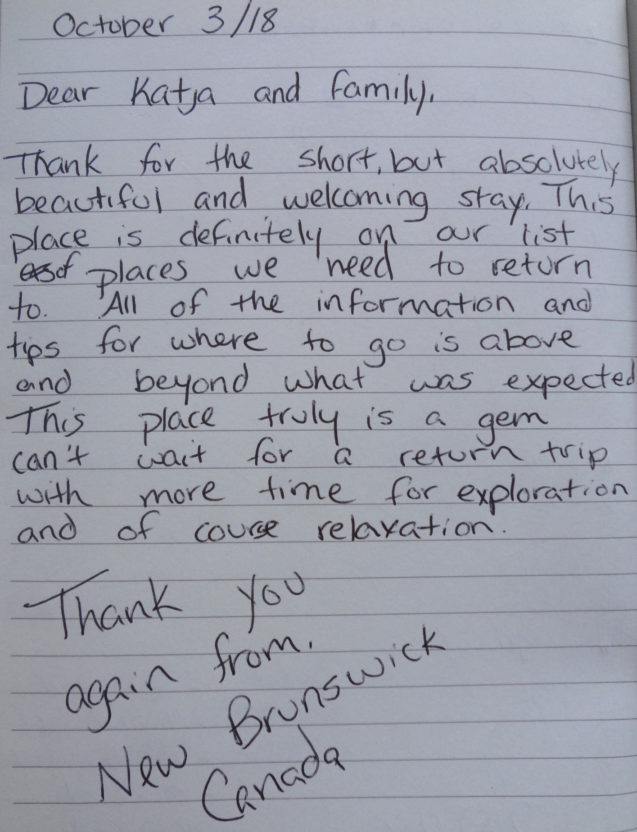 October 3/18
Dear Katja and family,
Thank for the short, but absolutely
beautiful and welcoming stay. This
place is definitely on our list
of places we need to return
to. All of the information and
tips for where to go is above
and beyond what was expected
This place truly is a gem
can't wait for a return trip
with more time for exploration
and of course relaxation.
Thank you
again from,
New Brunswick
Canada